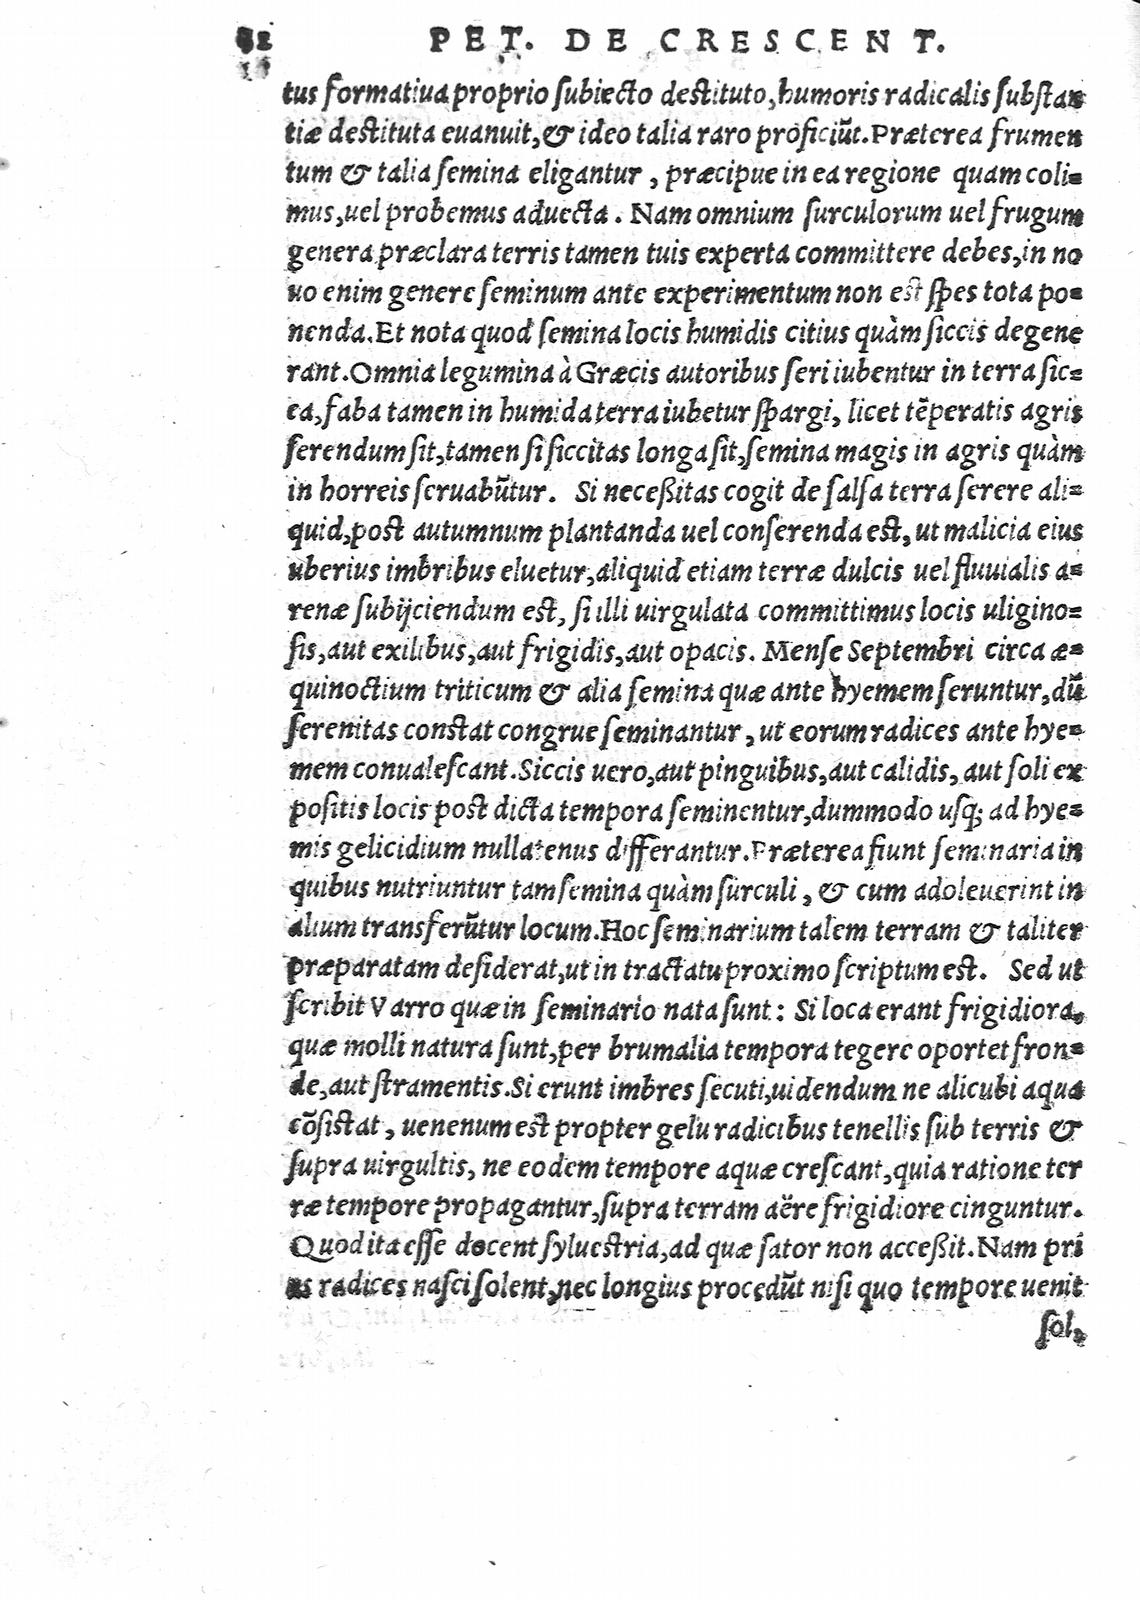 82 PET. DE CRESCENT.
tus formatiua proprio ſubiecto deſtituto, humoris radicalis ſubſtan
tiæ deſtituta euanuit, & ideo talia raro proficiũt. Præterea frumen
tum & talia ſemina eligantur, præcipue in ea regione quam coli=
mus, uel probemus aduecta. Nam omnium ſurculorum uel frugum
genera præclara terris tamen tuis experta committere debes, in no
uo enim genere ſeminum ante experimentum non eſt ſpes tota po=
nenda. Et nota quod ſemina locis humidis citius quàm ſiccis degene
rant. Omnia legumina à Græcis autoribus ſeri iubentur in terra ſic=
ca, faba tamen in humida terra iubetur ſpargi, licet tẽperatis agris
ſerendum ſit, tamen ſi ſiccitas longa ſit, ſemina magis in agris quàm
in horreis ſeruabũtur. Si neceßitas cogit de ſalſa terra ſerere ali=
quid, poſt autumnum plantanda uel conſerenda eſt, ut malicia eius
uberius imbribus eluetur, aliquid etiam terræ dulcis uel fluuialis a=
renæ ſubijciendum eſt, ſi illi uirgulata committimus locis uligino=
ſis, aut exilibus, aut frigidis, aut opacis. Menſe Septembri circa æ=
quinoctium triticum & alia ſemina quæ ante hyemem ſeruntur, dũ
ſerenitas conſtat congrue ſeminantur, ut eorum radices ante hye=
mem conualeſcant. Siccis uero, aut pinguibus, aut calidis, aut ſoli ex
poſitis locis poſt dicta tempora ſeminentur, dummodo uſq; ad hye=
mis gelicidium nullatenus differantur. Præterea fiunt ſeminaria in
quibus nutriuntur tam ſemina quàm ſurculi, & cum adoleuerint in
alium transferũtur locum. Hoc ſeminarium talem terram & taliter
præparatam deſiderat, ut in tractatu proximo ſcriptum eſt. Sed ut
ſcribit Varro quæ in ſeminario nata ſunt: Si loca erant frigidiora,
quæ molli natura ſunt, per brumalia tempora tegere oportet fron=
de, aut ſtramentis. Si erunt imbres ſecuti, uidendum ne alicubi aqua
cõſiſtat, uenenum eſt propter gelu radicibus tenellis ſub terris &
ſupra uirgultis, ne eodem tempore aquæ creſcant, quia ratione ter
ræ tempore propagantur, ſupra terram aëre frigidiore cinguntur.
Quod ita eſſe docent ſylueſtria, ad quæ ſator non acceßit. Nam pri
us radices naſci ſolent, nec longius procedũt niſi quo tempore uenit
ſol,